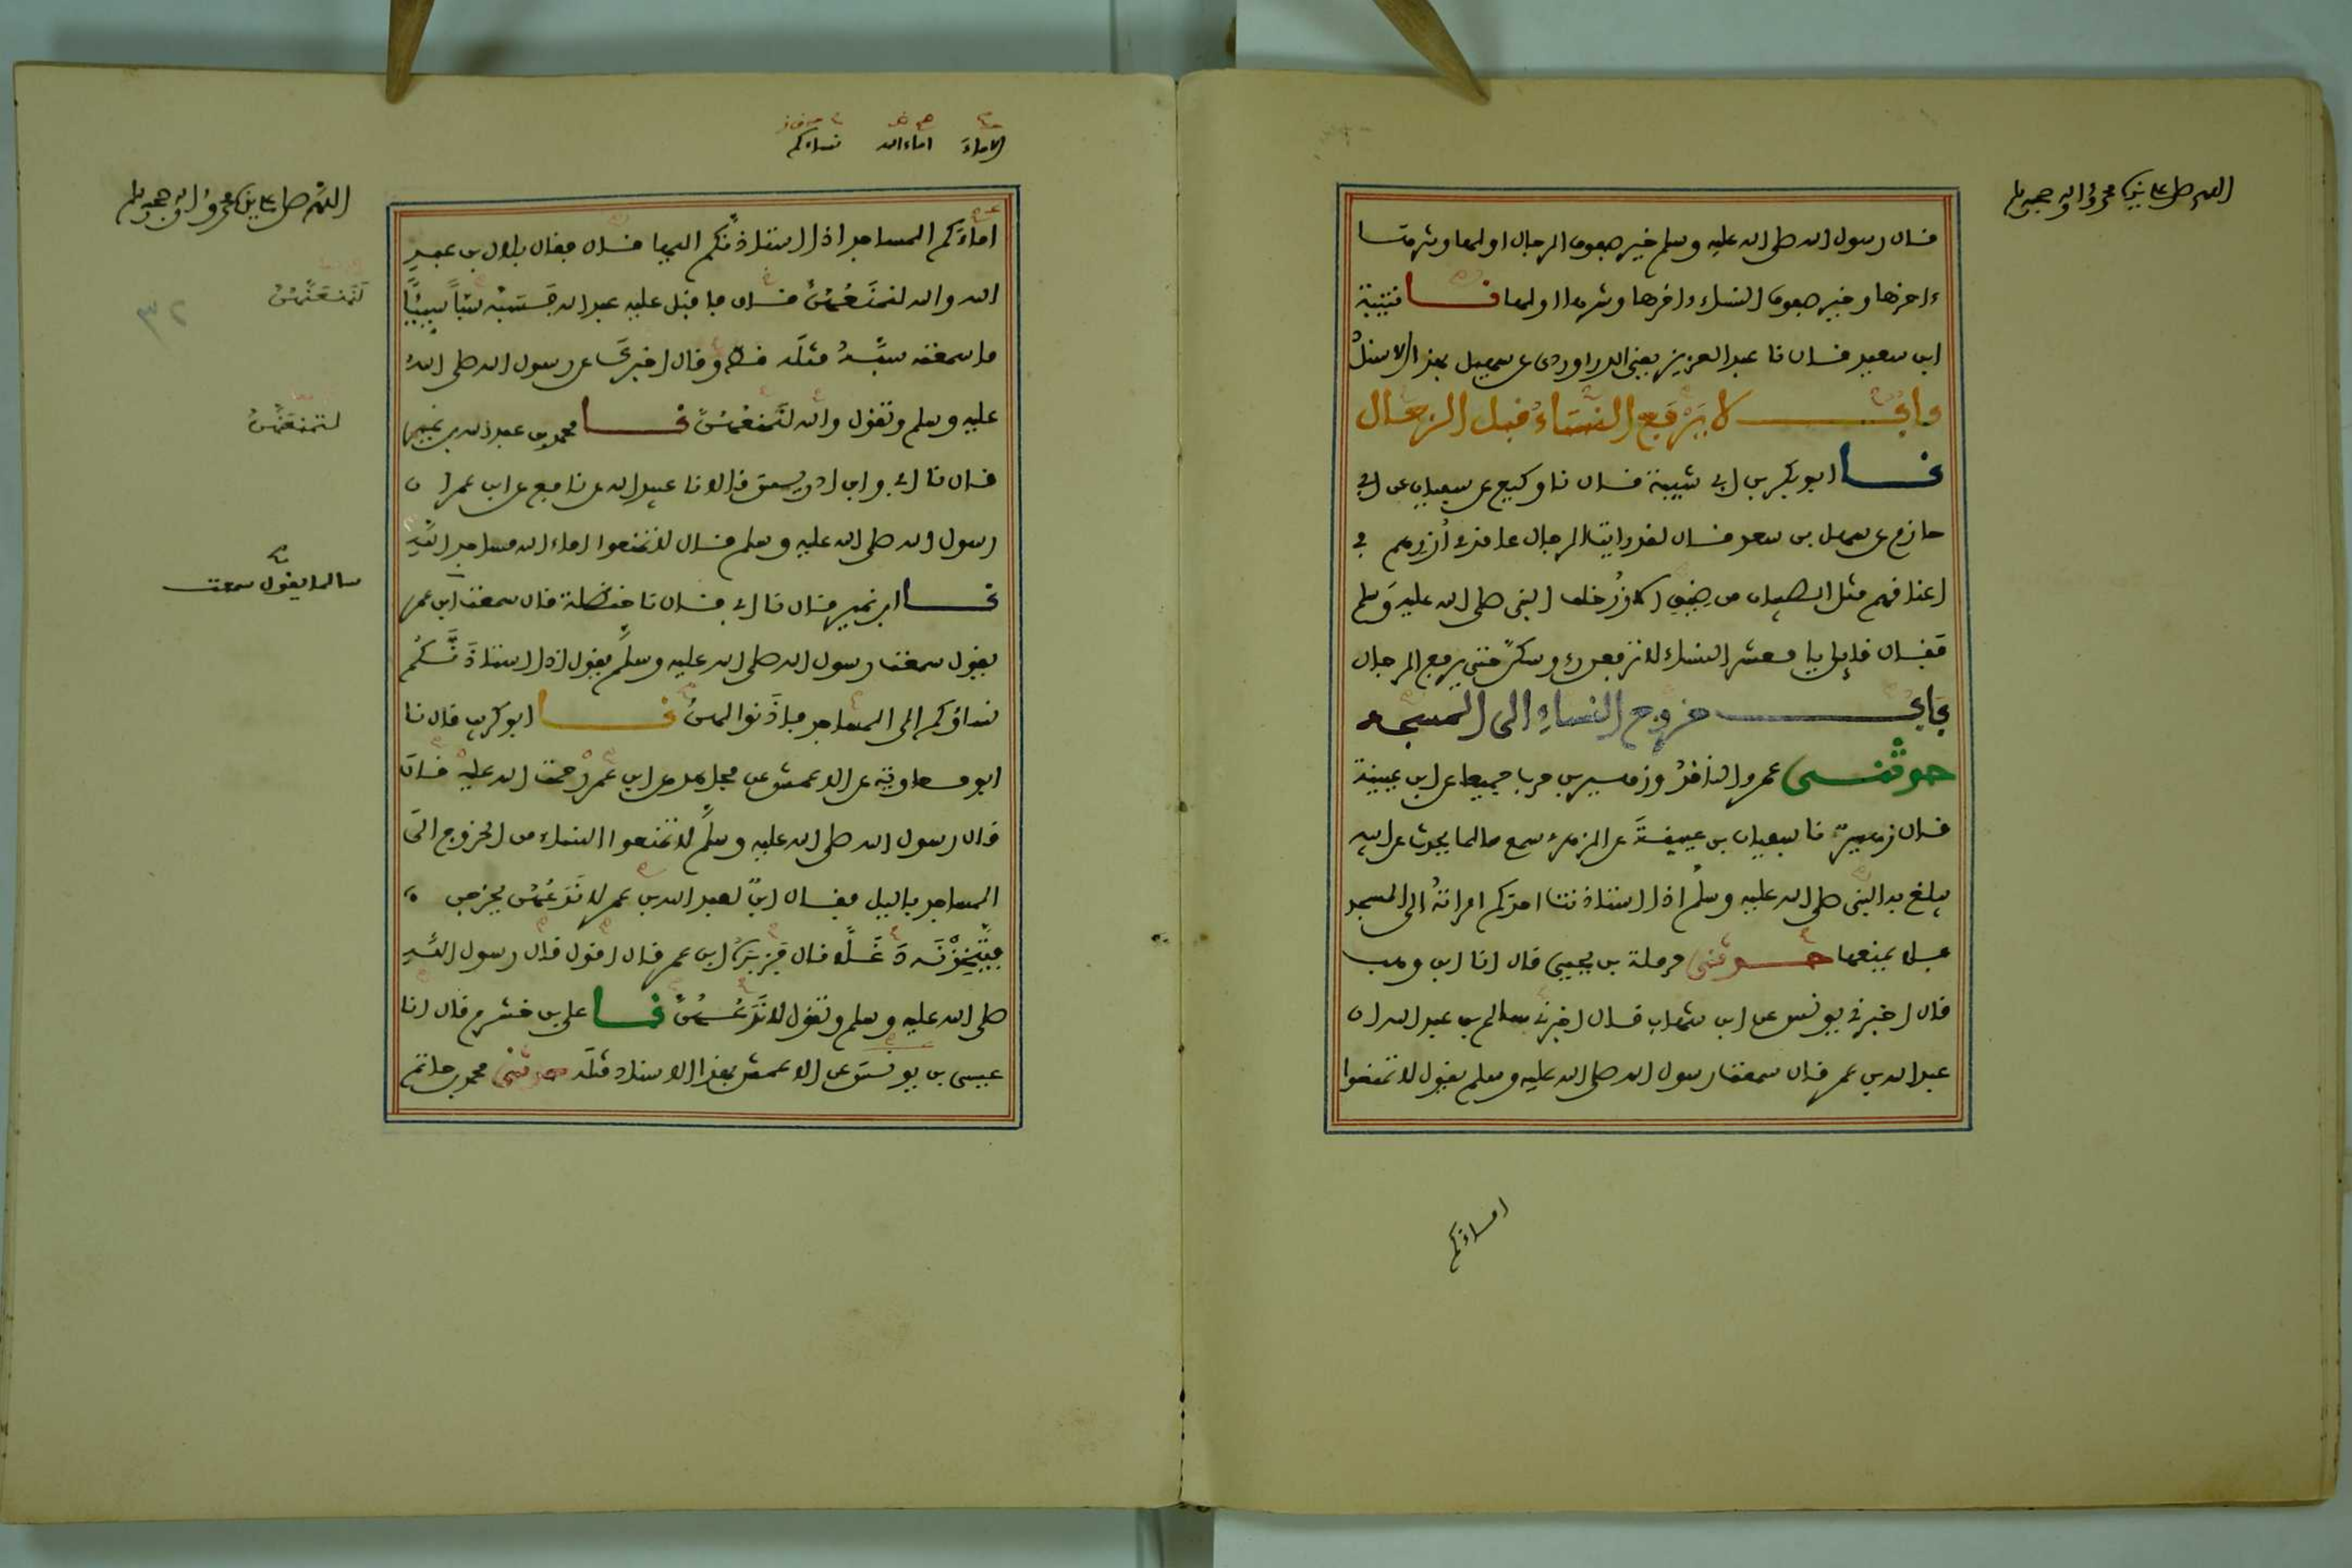 اللهم صل على سيدنا محمد وآله وصحبه وسلم
قال رسول الله صلى الله عليه وسلم خير صفوف الرجال اولها وشرها
ءاخرها وخير صفوف النساء ءاخرها وشرها اولها نا قتيبة
ابن سعيد قال نا عبد العزيز يعني الدراوردي عن سهيل بهذا الاسناد
باب لا يرفع النساء قبل الرجال
نا ابو بكر بن ابي شيبة قال نا وكيع عن سفيان عن ابي
حازم عن سهل بن سعد قال لقد رايت الرجال عاقدي أزرهم في
اعناقهم مثل الصبيان من ضيق الازر خلف النبي صلى الله عليه وسلم
فقال قائل يا معشر النساء لا ترفعن رءوسكن حتى يرفع الرجال
باب خروج النساء الى المسجد
حدثنى عمرو الناقد وزهير بن حرب جميعا عن ابن عيينة
قال زهير نا سفيان بن عيينة عن الزهري سمع سالما يحدث عن ابيه
يبلغ به النبي صلى الله عليه وسلم اذا استاذنت احدكم امراته الى المسجد
فلا يمنعها حدثنى حرملة بن يحيى قال انا ابن وهب
قال اخبرني يونس عن ابن شهاب قال اخبرني سالم بن عبد الله ان
عبد الله بن عمر قال سمعت رسول الله صلى الله عليه وسلم يقول لا تمنعوا
اماءكم
الاماء اماء الله نساءكم
اللهم صل على سيدنا محمد وآله وصحبه وسلم
اماءكم المساجد اذا استاذنكم اليها قال فقال بلال بن عبد
الله والله لنمنعهن قال فاقبل عليه عبد الله فسبه سبا سيئا
لنمنعهن
ما سمعته سبه مثله قط وقال اخبرك عن رسول الله صلى الله
عليه وسلم وتقول والله لنمنعهن نا محمد بن عبد الله بن نمير
لنمنعهن
قال نا ابي وابن ادريس قالا نا عبيد الله عن نافع عن ابن عمر ان
رسول الله صلى الله عليه وسلم قال لا تمنعوا اماء الله مساجد الله
نا ابن نمير قال نا ابي قال نا حنظلة قال سمعت ابن عمر
سالما يقول سمعت
يقول سمعت رسول الله صلى الله عليه وسلم يقول اذا استاذنكم
نساؤكم الى المساجد فاذنوا لهن نا ابو كريب قال نا
ابو معاوية عن الاعمش عن مجاهد عن ابن عمر رحمت الله عليه قال
قال رسول الله صلى الله عليه وسلم لا تمنعوا النساء من الخروج الى
المساجد بالليل فقال ابن لعبد الله بن عمر لا ندعهن يخرجن
فيتخذنه دغلا قال فزبره ابن عمر قال اقول قال رسول الله
صلى الله عليه وسلم وتقول لا ندعهن نا علي بن خشرم قال انا
عيسى بن يونس عن الاعمش بهذا الاسناد مثله حدثنى محمد بن حاتم